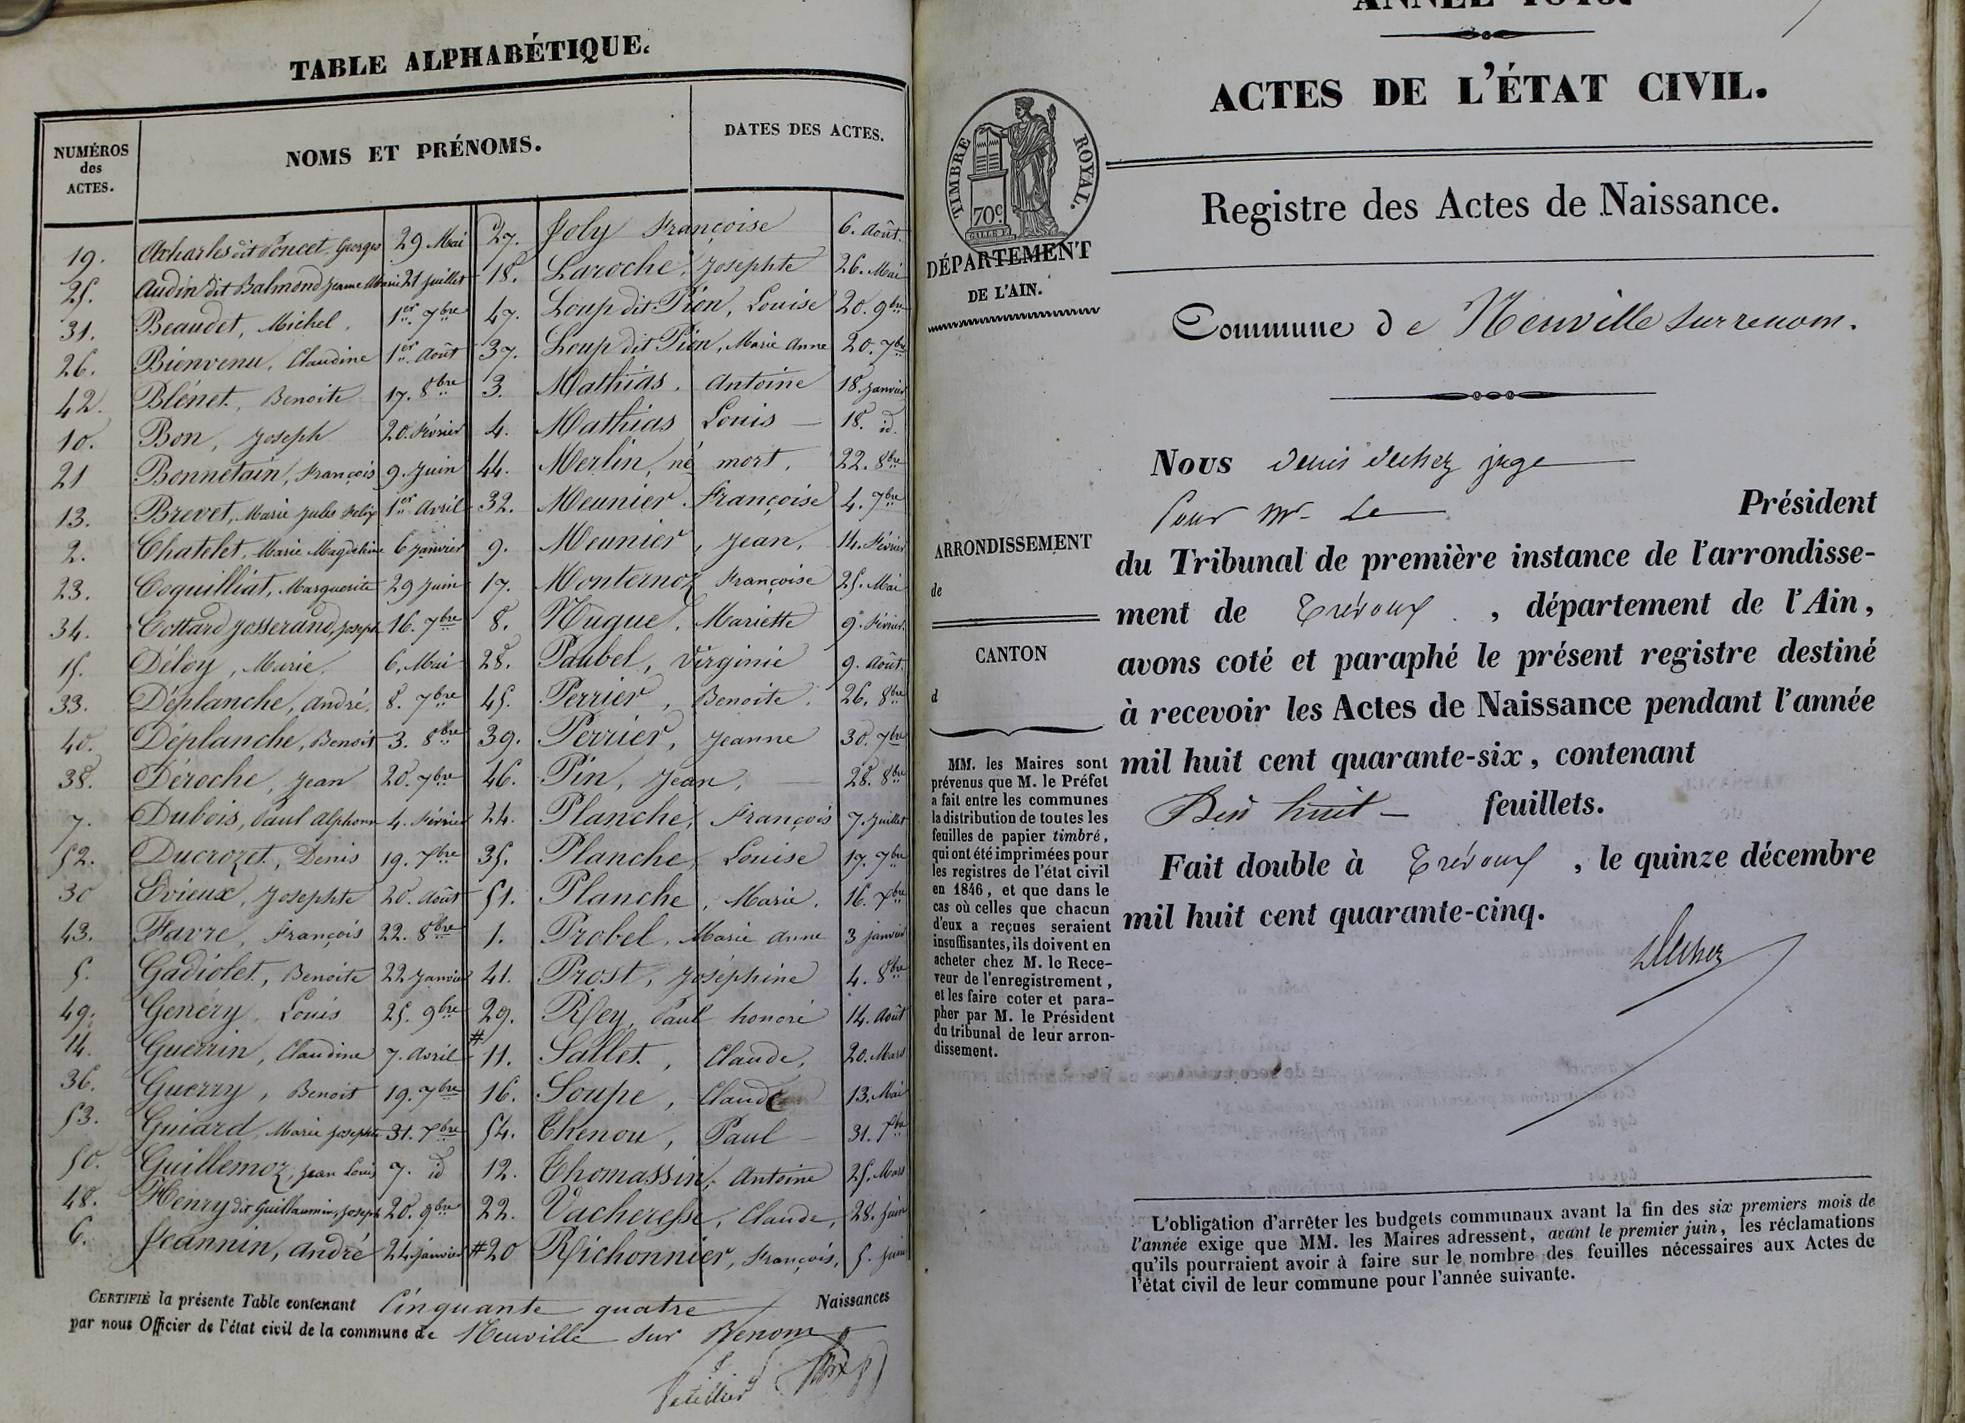 TABLE ALPHABÉTIQUE.
NUMÉROS
des
ACTES.
NOMS ET PRÉNOMS.
DATES DES ACTES.
19. Acharles dit Poncet, Georges 29 Mai
25. Audin dit Balmond Jeanne Marie 21 juillet
31. Beaudet, Michel. 1er 7bre
26. Bienvenu, Claudine 1er Août
42. Blénet, Benoite 17. 8bre
10. Bon, Joseph 20. Février
21 Bonnetain, François 9. Juin
13. Brevet, Marie Jules Félix 1er Avril
2. Chatelet, Marie Magdeleine 6 Janvier
23. Coquilliat, Marguerite 29 Juin
34. Cottard Josserand, Joseph 16. 7bre
15. Déloy, Marie. 6. Mai
33. Déplanche, André. 8. 7bre
40. Déplanche, Benoit 3. 8bre
38. Déroche, Jean 20. 7bre
7. Dubois, Paul Alphonse 4. Février
52. Ducrozet, Denis 19. Xbre
30 Evieux, Josephte 20. Août
43. Favre, François 22. 8bre
5. Gadiolet, Benoite 22 Janvier
49. Genéry, Louis 25. 9bre
14. Guérin, Claudine 7. Avril
36. Guerry, Benoit 19. 7bre
53. Guiard, Marie Josephte 31. Xbre
50. Guillemoz, Jean Louis 7. id
48. Henry dit Guillaumin, Joseph 20. 9bre
6. Jeannin, André 24. Janvier
27. Joly Françoise 6. Août.
18. Laroche, Josephte 26. Mai
47. Loup dit Pion, Louise 20. 9bre
37. Loup dit Pion, Marie Anne 20. 7bre
3. Mathias, Antoine 18. Janvier
4. Mathias Louis 18. id.
44. Merlin, né mort. 22. 8bre
32. Meunier Françoise 4. 7bre
9. Meunier, Jean. 14. Février
17. Montemoz Françoise 25. Mai
8. Nugue, Mariette 9. Février.
28. Paubel, Virginie 9. Août.
45. Perrier, Benoite. 26. 8bre
39. Perrier, Jeanne 30. 7bre
46. Pin, Jean. 28. 8bre
24. Planche, François 7. Juillet
35. Planche, Louise 17. 7bre
51. Planche, Marie. 16. Xbre
1. Probel, Marie Anne 3 Janvier
41. Prost, Joséphine 4. 8bre
29. Rey, Paul honoré 14. Août
# 11. Sallet, Claude, 20. Mars
16. Soupe, Claude 13. Mai
54. Thenou, Paul 31. Xbre
12. Thomassin, Antoine 25. Mars
22. Vacheresse, Claude, 28. Juin
#20 Richonnier, François, 5. Juin
CERTIFIÉ la présente Table contenant Cinquante quatre Naissances
par nous Officier de l'état civil de la commune de Neuville sur Renom
ACTES DE L'ÉTAT CIVIL.
TIMBRE ROYAL.
70c
DÉPARTEMENT
DE L'AIN.
Registre des Actes de Naissance.
Commune de Neuville sur renom.
Nous Denis Duchez juge
Pour Mr. Le Président
du Tribunal de première instance de l'arrondisse-
ment de Trévoux, département de l'Ain,
avons coté et paraphé le présent registre destiné
à recevoir les Actes de Naissance pendant l'année
mil huit cent quarante-six, contenant
Dix huit feuillets.
Fait double à Trévoux, le quinze décembre
mil huit cent quarante-cinq.
Duchez
ARRONDISSEMENT
de
CANTON
d
MM. les Maires sont
prévenus que M. le Préfet
a fait entre les communes
la distribution de toutes les
feuilles de papier timbré,
qui ont été imprimées pour
les registres de l'état civil
en 1846, et que dans le
cas où celles que chacun
d'eux a reçues seraient
insuffisantes, ils doivent en
acheter chez M. le Rece-
veur de l'enregistrement,
et les faire coter et para-
pher par M. le Président
du tribunal de leur arron-
dissement.
L'obligation d'arrêter les budgets communaux avant la fin des six premiers mois de
l'année exige que MM. les Maires adressent, avant le premier juin, les réclamations
qu'ils pourraient avoir à faire sur le nombre des feuilles nécessaires aux Actes de
l'état civil de leur commune pour l'année suivante.